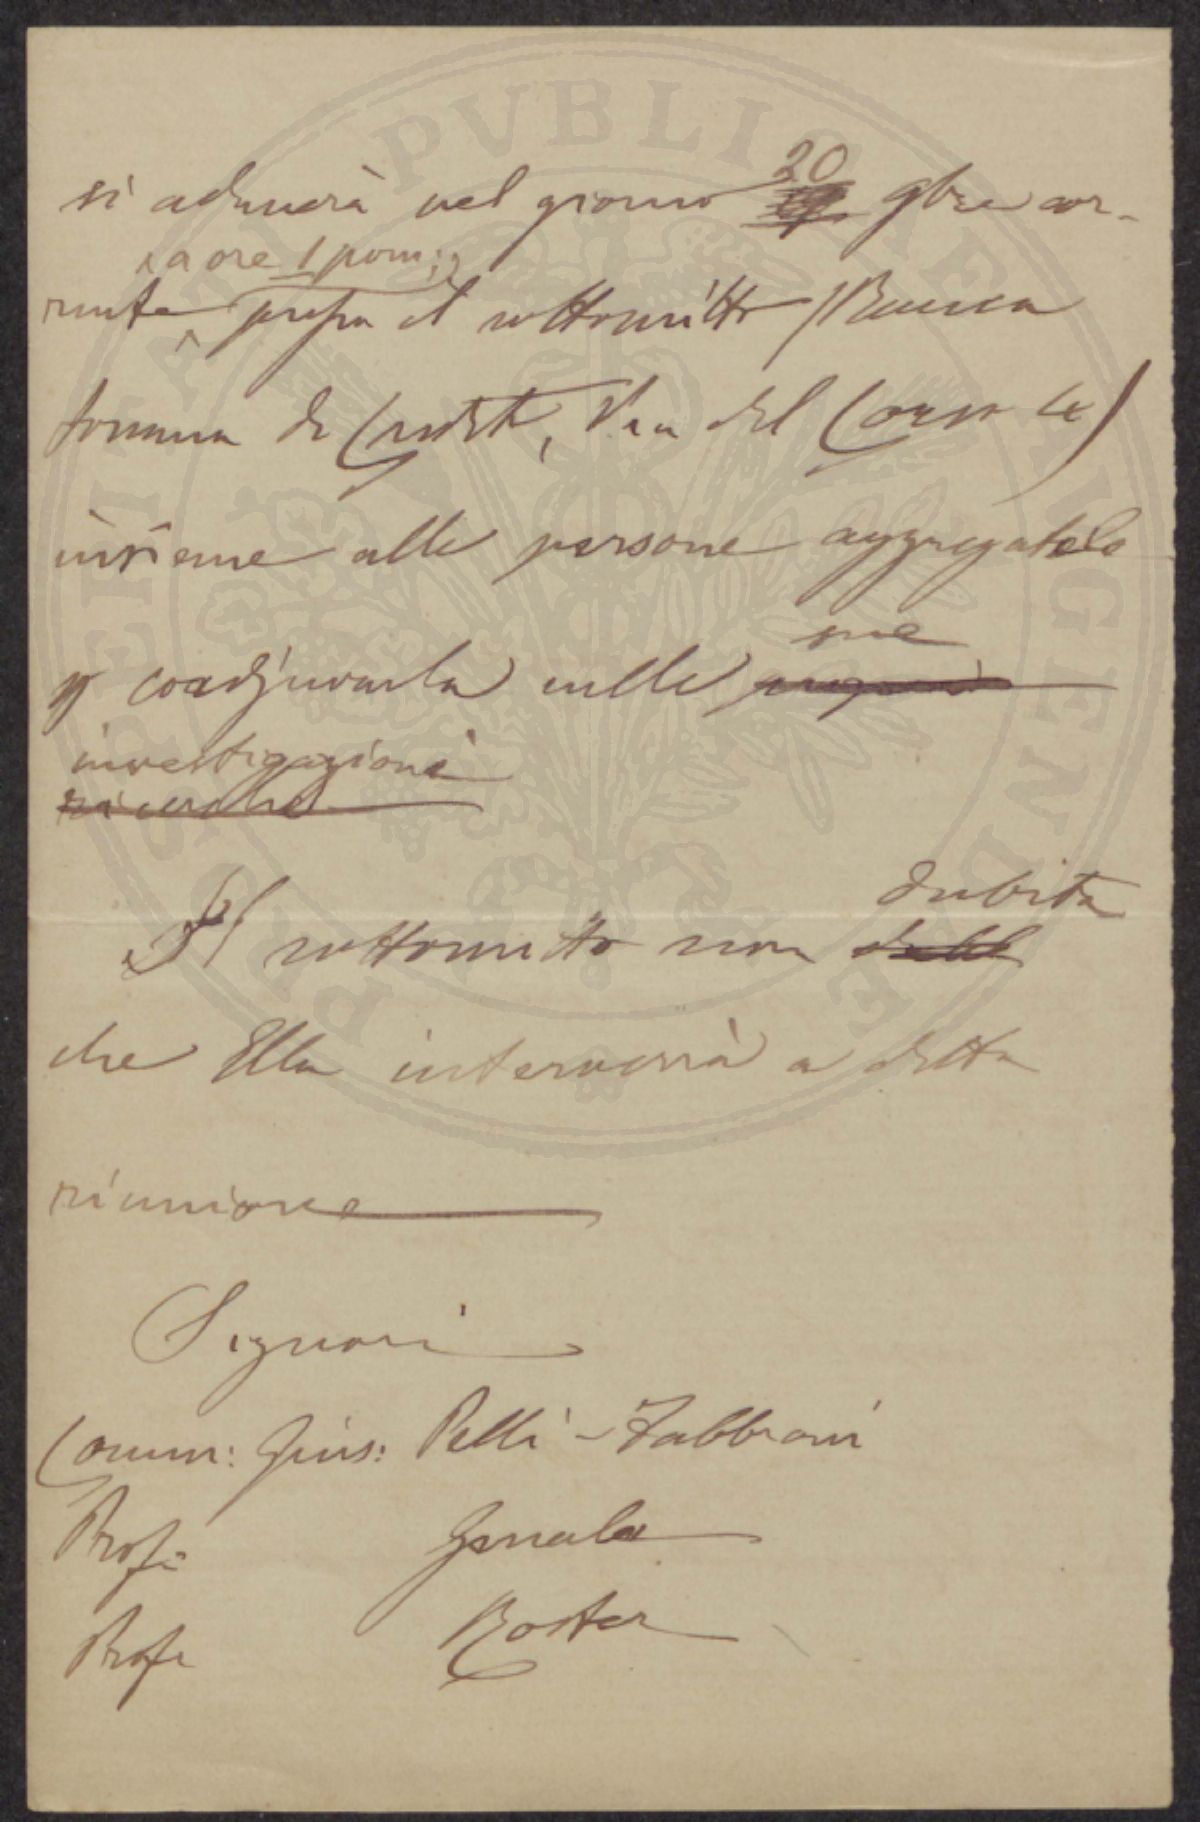 si adunerà nel giorno 20 9bre cor-
a ore 1 pom:
rente presso il sottoscritto (Banca
di Credito, Via del Corso 4)
insieme alle persone aggregatele
p coadjuvarla nelle sue
investigazioni
ricerche
Il sottoscritto non dubita
che Ella interverrà a detta
riunione
Signori
Comm: Gius: Pelli-Fabbroni
Prof: Genala
Prof: Roster